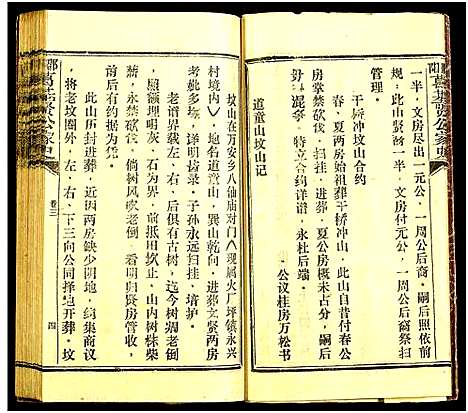 一半，文房尽出一元公，一元公后裔，嗣后照依前
规：此山贤房一半，文房付元公，一元公后裔祭扫
管理。
干桥冲坟山合约
春、夏两房始祖葬于桥冲山，此山自付春公
房掌禁扫挂，进葬，夏公房概未占分，嗣后
毋得混争，特立合约详谱，永杜后端。
公议桂房万松书
道童山坟山记
坟山在万安乡八仙庙对门（现属火厂坪镇永兴
村境内），地名道童山，巽山乾向，进葬文贤两房
妣多坟，详明齿录，子孙永远扫挂，培护。
老谱界载后，左、右、后俱有古树，迄今树凋老倒
，照额埋明灰、石，前抵田圹止，山内树株柴
薪，永禁，倘树风吹老倒，看明归贤房管收，
前后有约。
此山历封进葬，近因两房缺少阴地，续集商议
，将老坟圈外，左、右、下三向公同择地开葬。坟
卷三
四